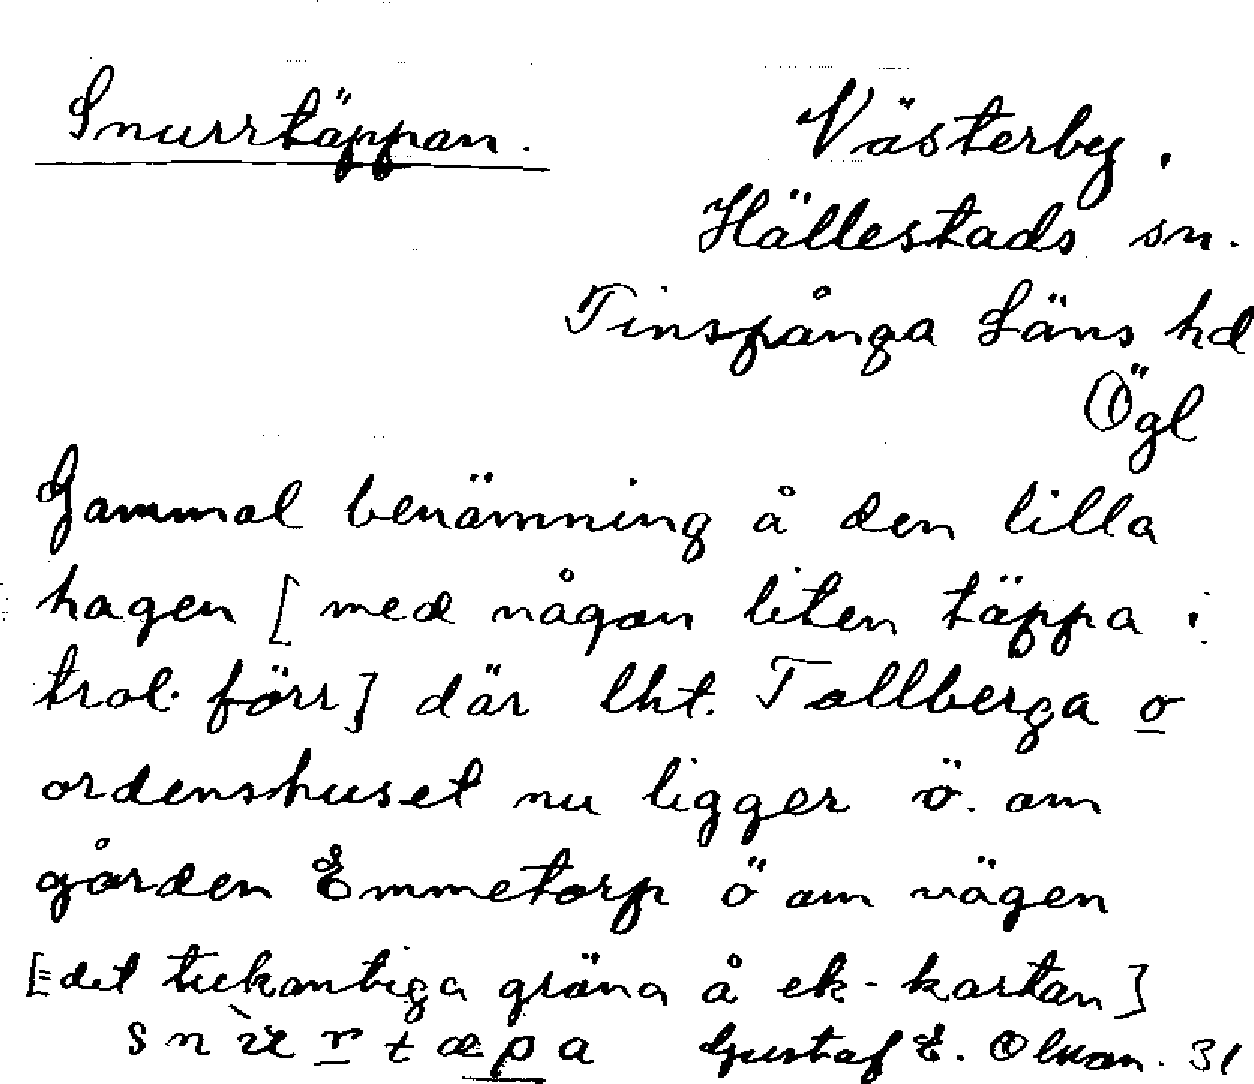 Snurrtäppan.
Västerby.
Hällestads sn.
Finspånga Läns hd
Ögl
Gammal benämning å den lilla
hagen [med någon liten täppa i
trol. förr] där lht. Tallberga o
ordenshuset nu ligger ö. om
gården Emmetorp ö om vägen
[= det trekantiga gröna å ek-kartan]
Gustaf E. Olson. 31